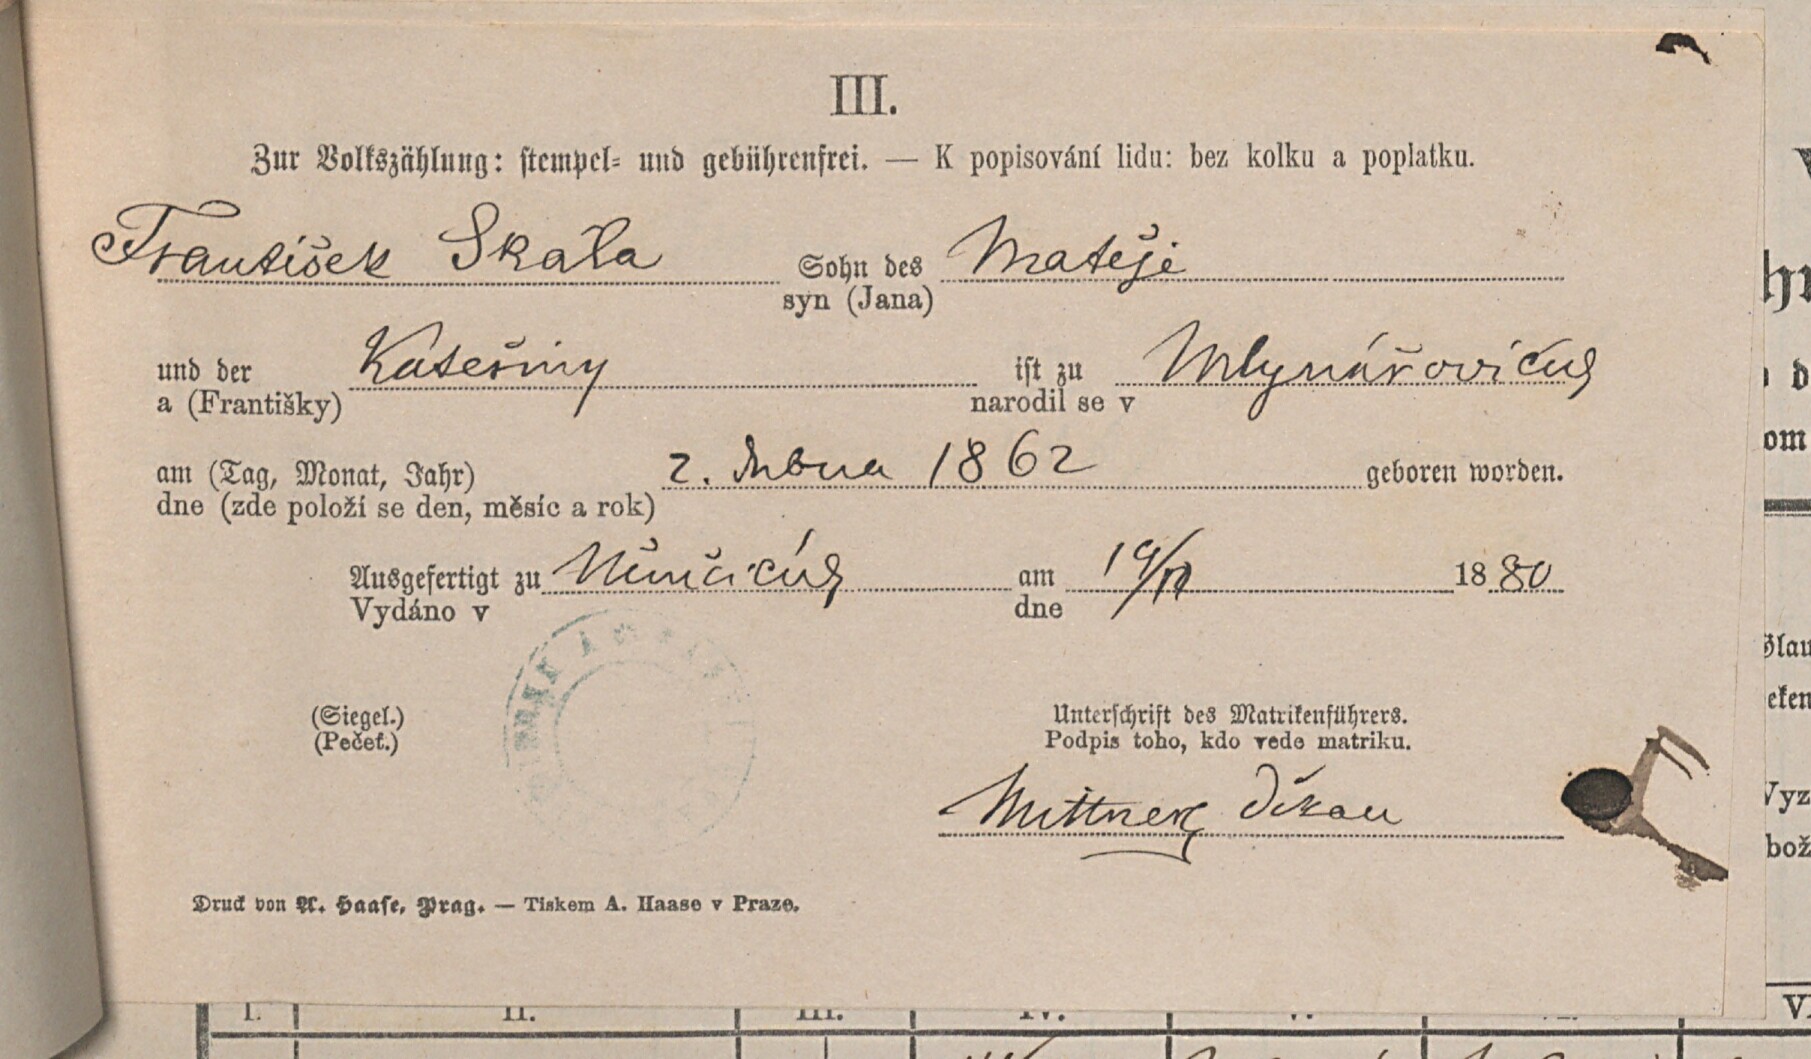 III.
Zur Volkszählung: stempel= und gebührenfrei. — K popisování lidu: bez kolku a poplatku.
František Skála Sohn des Matěje
syn (Jana)
und der Kateřiny ist zu Mlynářovicích
a (Františky) narodil se v
am (Tag, Monat, Jahr) 2. dubna 1862 geboren worden.
dne (zde položí se den, měsíc a rok)
Ausgefertigt zu Němčicích am 19/12 1880
Vydáno v dne
(Siegel.) Unterschrift des Matrikenführers.
(Pečeť.) Podpis toho, kdo vede matriku.
Mittner děkan
Druck von A. Haase, Prag. — Tiskem A. Haase v Praze.
I. II. III. IV. V. VI.